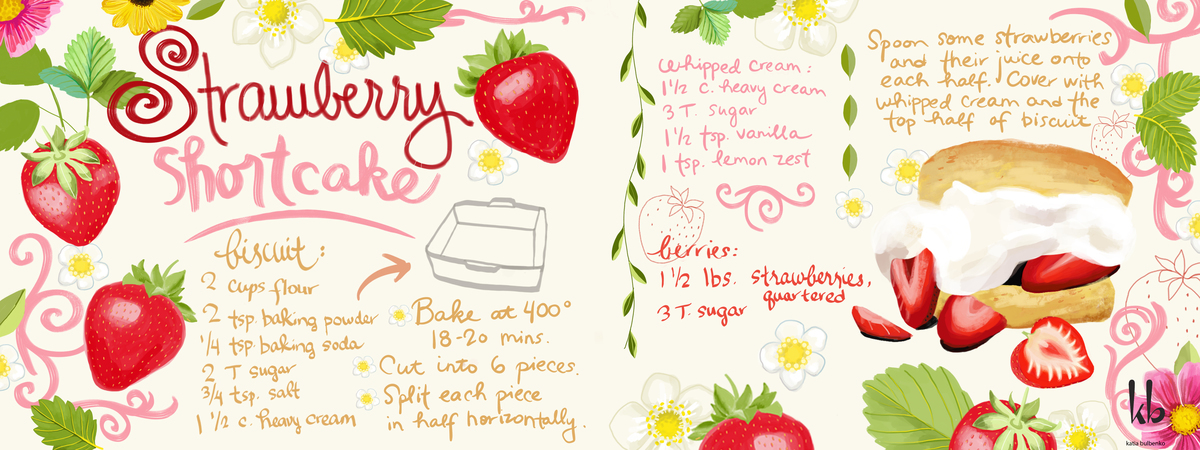 Strawberry
Shortcake
biscuit:
2 cups flour
2 tsp. baking powder
1/4 tsp. baking soda
2 T sugar
3/4 tsp. salt
1 1/2 c. heavy cream
Bake at 400°
18-20 mins.
Cut into 6 pieces.
Split each piece
in half horizontally.
Whipped Cream:
1 1/2 c. heavy cream
3 T. sugar
1 1/2 tsp. vanilla
1 tsp. lemon zest
berries:
1 1/2 lbs. strawberries,
quartered
3 T. sugar
Spoon some strawberries
and their juice onto
each half. Cover with
whipped cream and the
top half of biscuit
kb
katia bulbenko